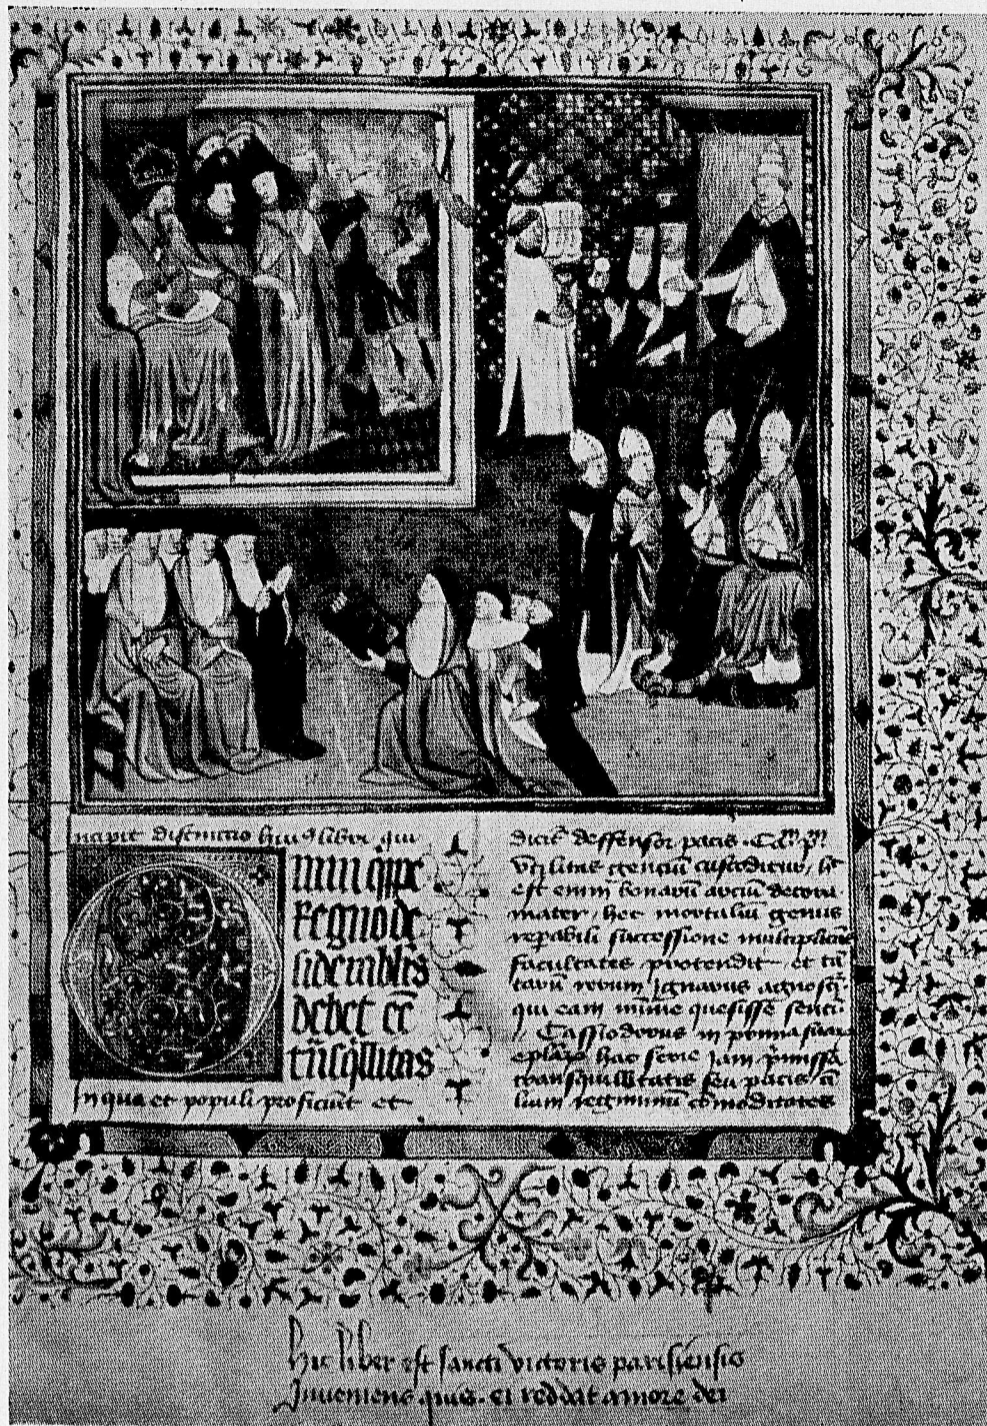 ncipit distinctio huius libri qui
Omni q̄ppe
Regno de
siderabilis
debet eē
trāsq̄llitas
In qua et populi proficiūt et
dicit̃ deffensor pacis . Ca.m p.m
Vtilitas genciū custoditur / h̄
est enim bonarū arciū decora
mater / hec mortaliū genus
repabili successione multiplicās
facultates protendit et tā
tarū rerum Ignarus agnoscit̃
qui eam mīme quesisse senti
Cassiodorus in prima suarū
eplarū hac serie Jam p̄missā
transquillitatis seu pacis ci
lium regiminū cōmoditates
hic liber est sancti victoris parisiensis
Inueniens quis . ei reddat amore dei